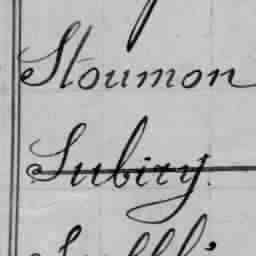 Stoumon
Subiry.